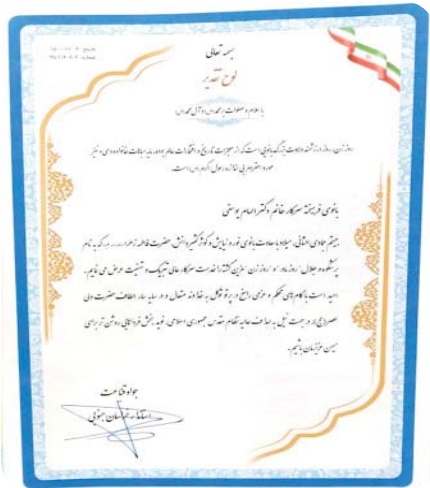 بسمه تعالی
لوح تقدیر
با سلام و صلوات بر محمد (ص) و آل محمد (ص)
روز زن، روز ارزشمند ولادت بزرگ بانویی است که از معجزات تاریخ و افتخارات عالم بوده، مایه مباهات خانواده وحی و نیز
مورد احترام بی اندازه رسول اکرم (ص) است.
بانوی فرهیخته سرکار خانم دکتر الهام یوسفی
بیستم جمادی الثانی، میلاد با سعادت بانوی نور و نیایش و کوثر کثیر دانش حضرت فاطمه زهرا که به نام
پرشکوه و جلال "روز مادر" و "روز زن" مزین گشته را خدمت سرکار عالی تبریک و تهنیت عرض می نمایم.
امید است با گام های محکم و عزمی راسخ و در پرتو توکل به خداوند متعال و در سایه سار الطاف حضرت ولی
عصر (عج) در جهت نیل به اهداف عالیه نظام مقدس جمهوری اسلامی، نوید بخش فردا‌هایی روشن تر برای
میهن عزیزمان باشیم.
جواد قناعت
استاندار خراسان جنوبی